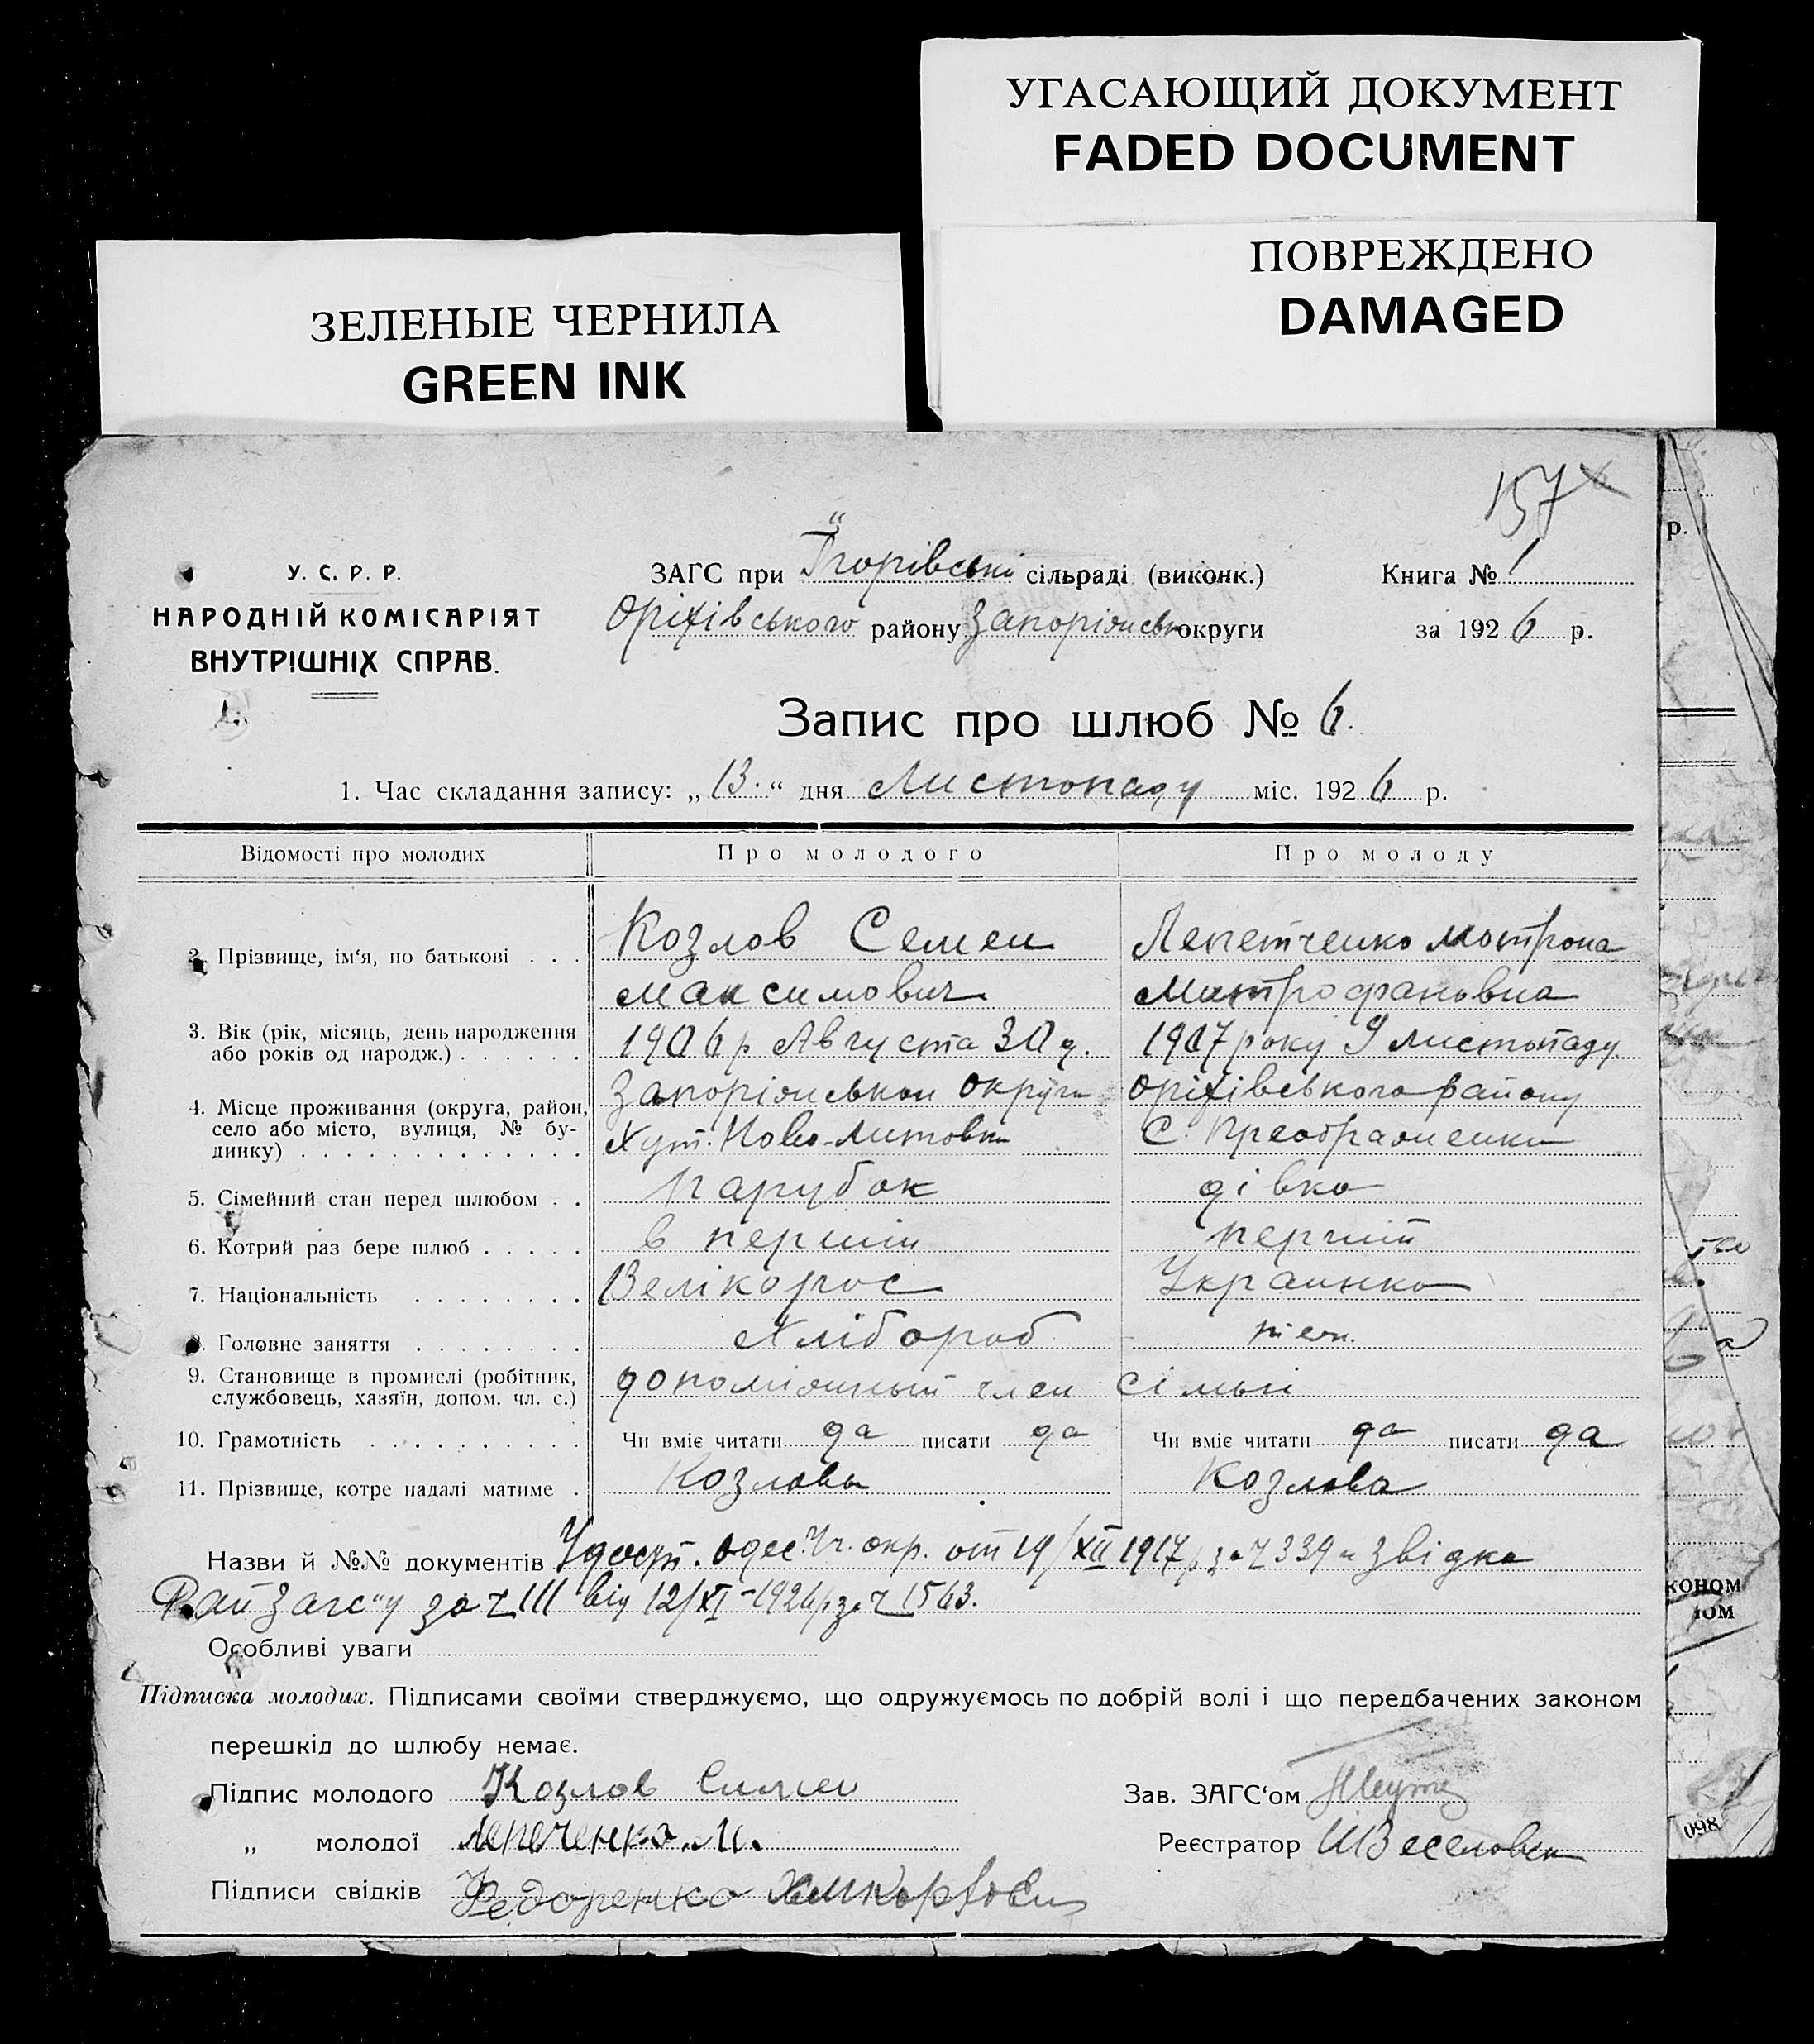 УГАСАЮЩИЙ ДОКУМЕНТ
FADED DOCUMENT
ПОВРЕЖДЕНО
DAMAGED
ЗЕЛЕНЫЕ ЧЕРНИЛА
GREEN INK
157
У. С. Р. Р.
НАРОДНІЙ КОМІСАРІЯТ
ВНУТРІШНІХ СПРАВ.
ЗАГС при сільраді (виконк.)
Оріхівського району Запоріжськ округи
Книга № 1
за 1926 р.
Запис про шлюб № 6.
1. Час складання запису: „13.“ дня Листопаду міс. 1926 р.
Відомості про молодих Про молодого Про молоду
2. Прізвище, ім‘я, по батькові . . . Козлов Семен Лепетченко Мотрона
Максимович Митрофановна
3. Вік (рік, місяць, день народження
або років од народж.) . . . . . . 1906 р Августа 30 д. 1907 року 9 листопаду
4. Місце проживання (округа, район,
село або місто, вулиця, № бу-
динку) . . . . . . . . . . . . .
Запоріжськои округи Оріхівського району
Хут. Ново-Литовки С. Преображенки
5. Сімейний стан перед шлюбом . . парубок дівка
6. Котрий раз бере шлюб . . . . . в перший перший
7. Національність . . . . . . . . Велікорос Украинка
8. Головне заняття . . . . . . . . Хлібороб
9. Становище в промислі (робітник,
службовець, хазяїн, допом. чл. с.) допоміжный член сімьі
10. Грамотність . . . . . . . . . . Чи вміє читати да писати да Чи вміє читати да писати да
11. Прізвище, котре надалі матиме . Козлова Козлова
Назви й №№ документів от 19/XII 1917 р за Ч 339 и Звідка
Рай Загс"у за Ч III від 12/XI-1926 р за Ч 1563.
Особливі уваги
Підписка молодих. Підписами своїми стверджуємо, що одружуємось по добрій волі і що передбачених законом
перешкід до шлюбу немає.
Підпис молодого Козлов Зав. ЗАГС‘ом
„ молодої Реєстратор
Підписи свідків Федоренко
р.
коном
ıом
098